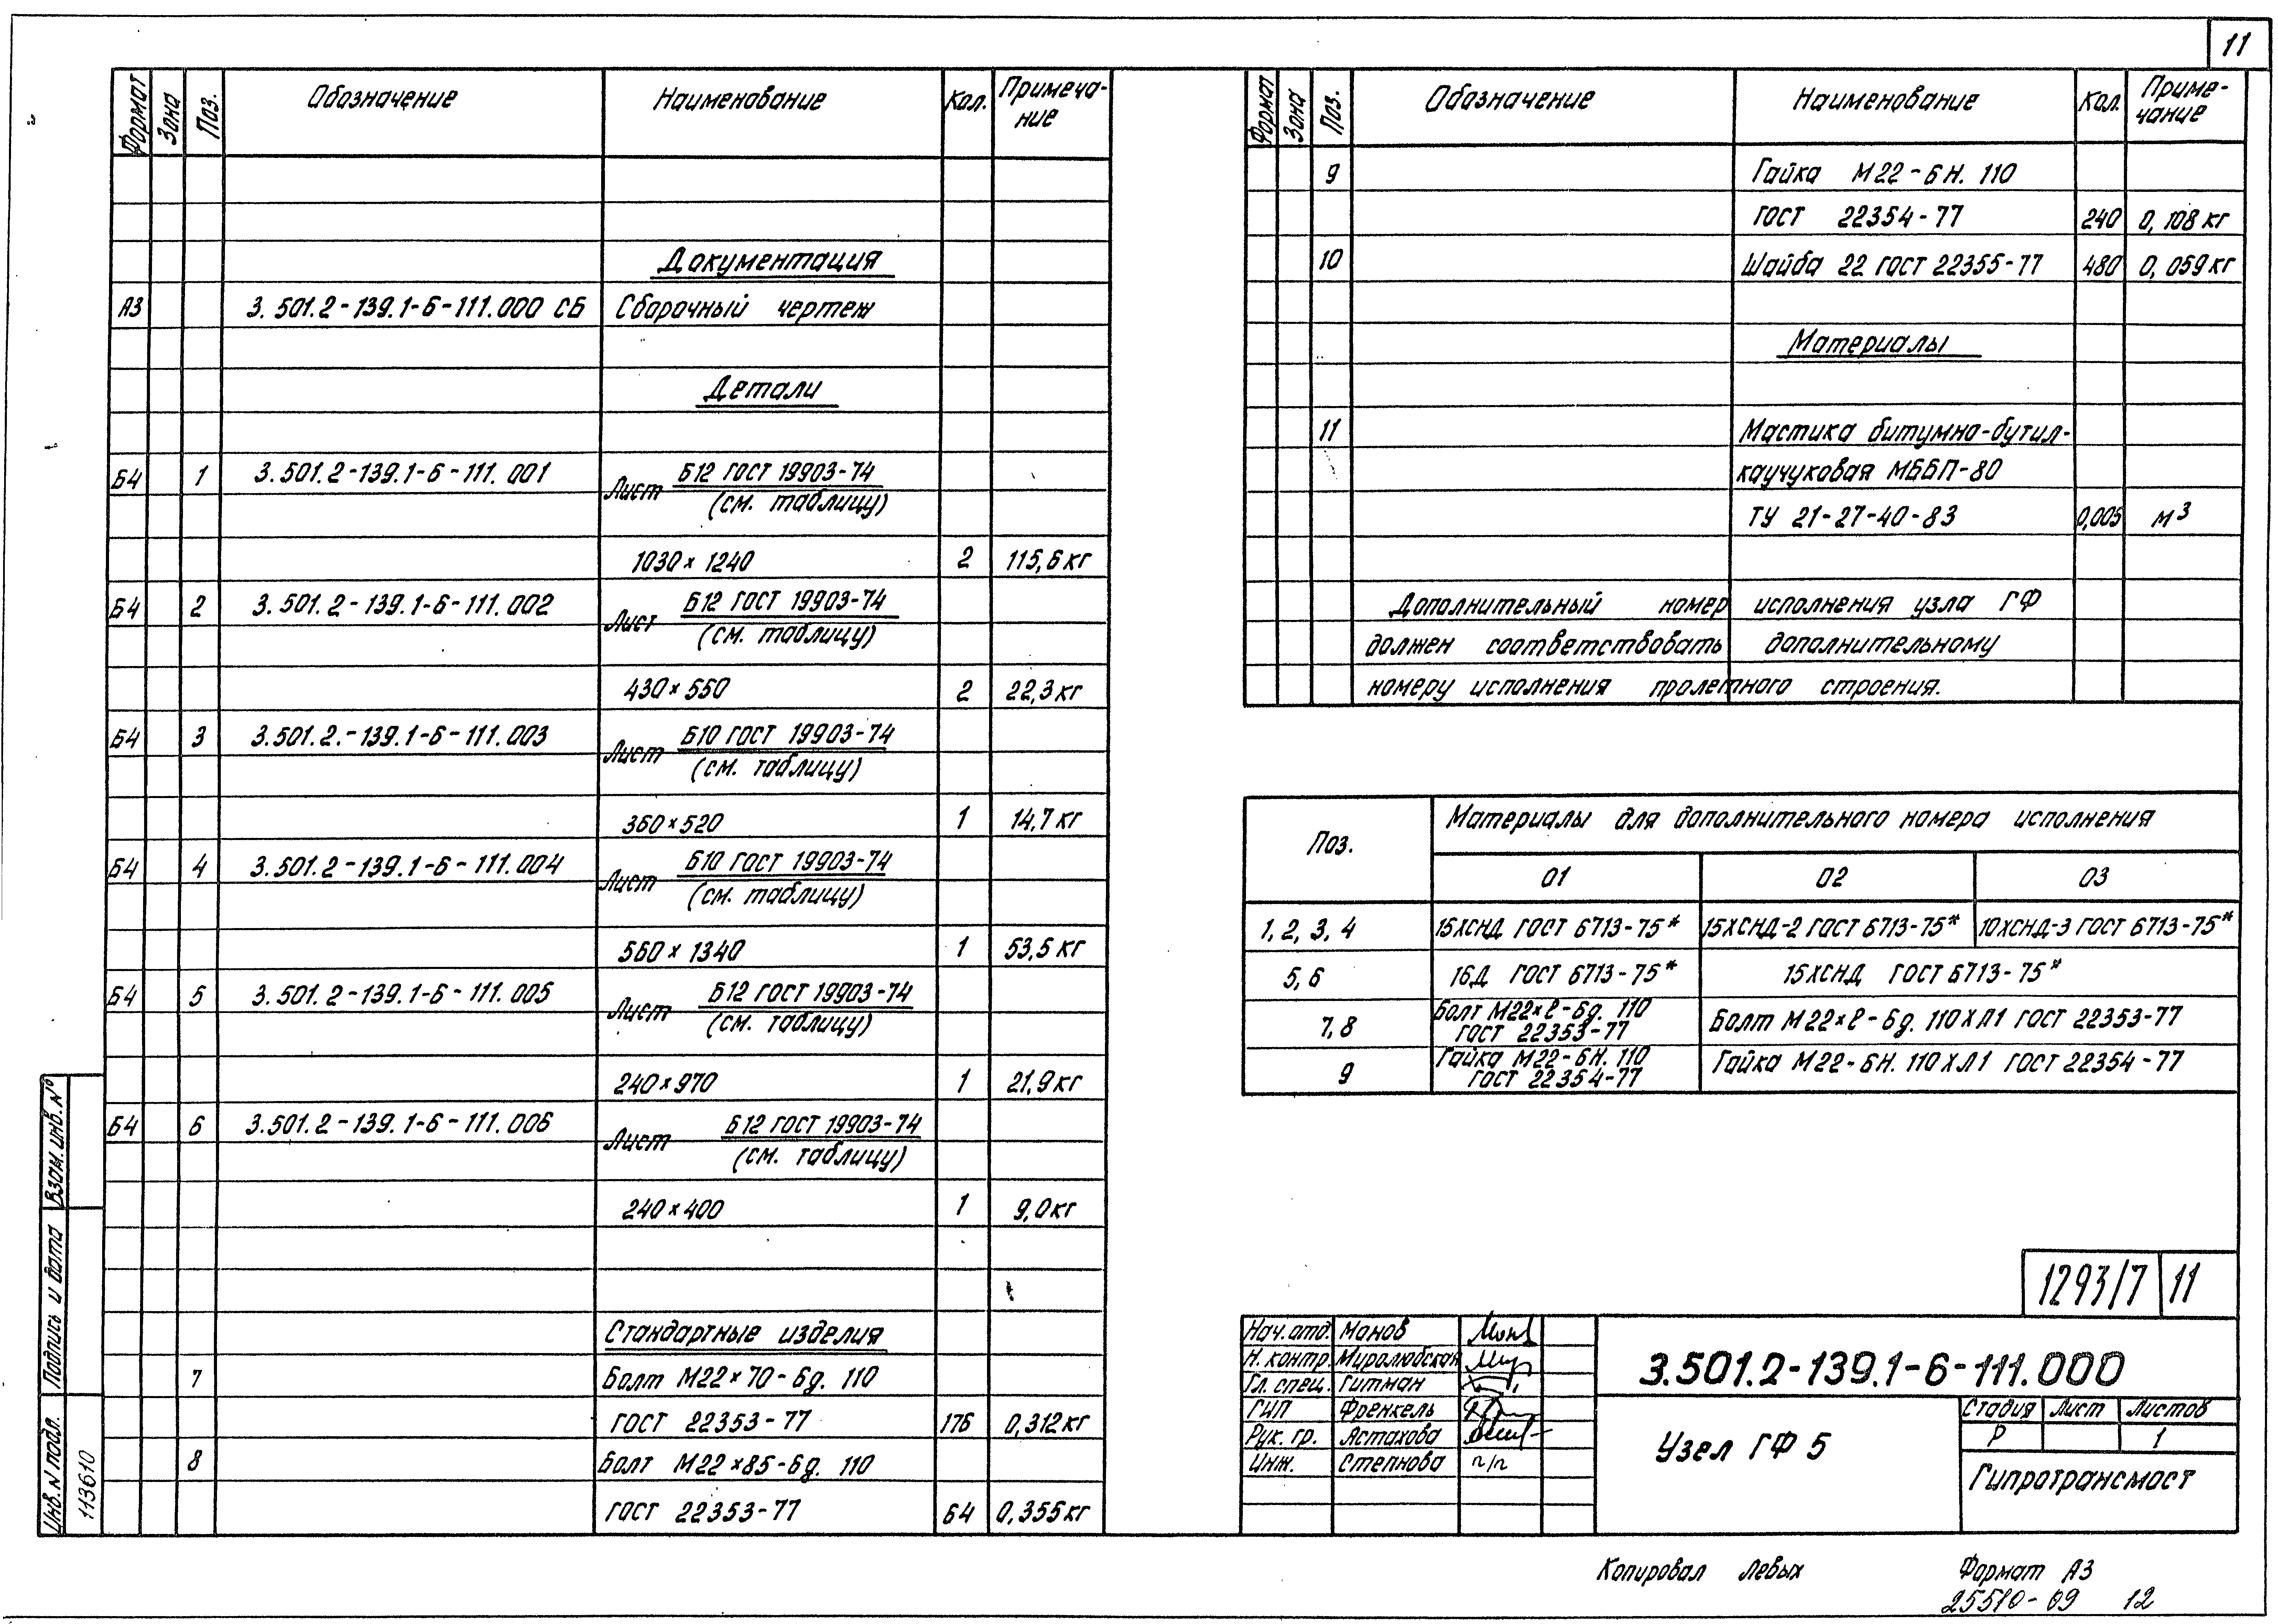 11
Формат Зона Поз. Обозначение Наименование Кол. Примеча-
ние
Документация
А3 3.501.2-139.1-6-111.000 СБ Сборочный чертеж
Детали
Б4 1 3.501.2-139.1-6-111.001 Лист Б12 ГОСТ 19903-74
(см. таблицу)
1030×1240 2 115,6 кг
Б4 2 3.501.2-139.1-6-111.002 Лист Б12 ГОСТ 19903-74
(см. таблицу)
430×550 2 22,3 кг
Б4 3 3.501.2.-139.1-6-111.003 Лист Б10 ГОСТ 19903-74
(см. таблицу)
360×520 1 14,7 кг
Б4 4 3.501.2-139.1-6-111.004 Лист Б10 ГОСТ 19903-74
(см. таблицу)
560×1340 1 53,5 кг
Б4 5 3.501.2-139.1-6-111.005 Лист Б12 ГОСТ 19903-74
(см. таблицу)
240×970 1 21,9 кг
Б4 6 3.501.2-139.1-6-111.006 Лист Б12 ГОСТ 19903-74
(см. таблицу)
240×400 1 9,0 кг
Стандартные изделия
7 Болт М22×70-6д. 110
ГОСТ 22353-77 176 0,312 кг
8 Болт М22×85-6д. 110
ГОСТ 22353-77 64 0,355 кг
Формат Зона Поз. Обозначение Наименование Кол. Приме-
чание
9 Гайка М22-6Н. 110
ГОСТ 22354-77 240 0,108 кг
10 Шайба 22 ГОСТ 22355-77 480 0,059 кг
Материалы
11 Мастика битумно-бутил-
каучуковая МББП-80
ТУ 21-27-40-83 0,005 м3
Дополнительный номер исполнения узла ГФ
должен соответствовать дополнительному
номеру исполнения пролетного строения.
Поз. Материалы для дополнительного номера исполнения
01 02 03
1, 2, 3, 4 15ХСНД ГОСТ 6713-75* 15ХСНД-2 ГОСТ 6713-75* 10ХСНД-3 ГОСТ 6713-75*
5, 6 16Д ГОСТ 6713-75* 15ХСНД ГОСТ 6713-75*
7, 8 Болт М22×ℓ-6д. 110
ГОСТ 22353-77 Болт М22×ℓ-6д. 110ХЛ1 ГОСТ 22353-77
9 Гайка М22-6Н. 110
ГОСТ 22354-77 Гайка М22-6Н. 110ХЛ1 ГОСТ 22354-77
1293/7 11
Нач. отд. Монов
Н. контр. Миролюбская
Гл. спец. Гитман
ГИП Френкель
Рук. гр. Астахова
Инж. Степнова п/п
3.501.2-139.1-6-111.000
Узел ГФ 5
Стадия Лист Листов
Р 1
Гипротрансмост
Взам. инв. №
Подпись и дата
Инв. № подл. 113610
Копировал Левых Формат А3
25510-09 12